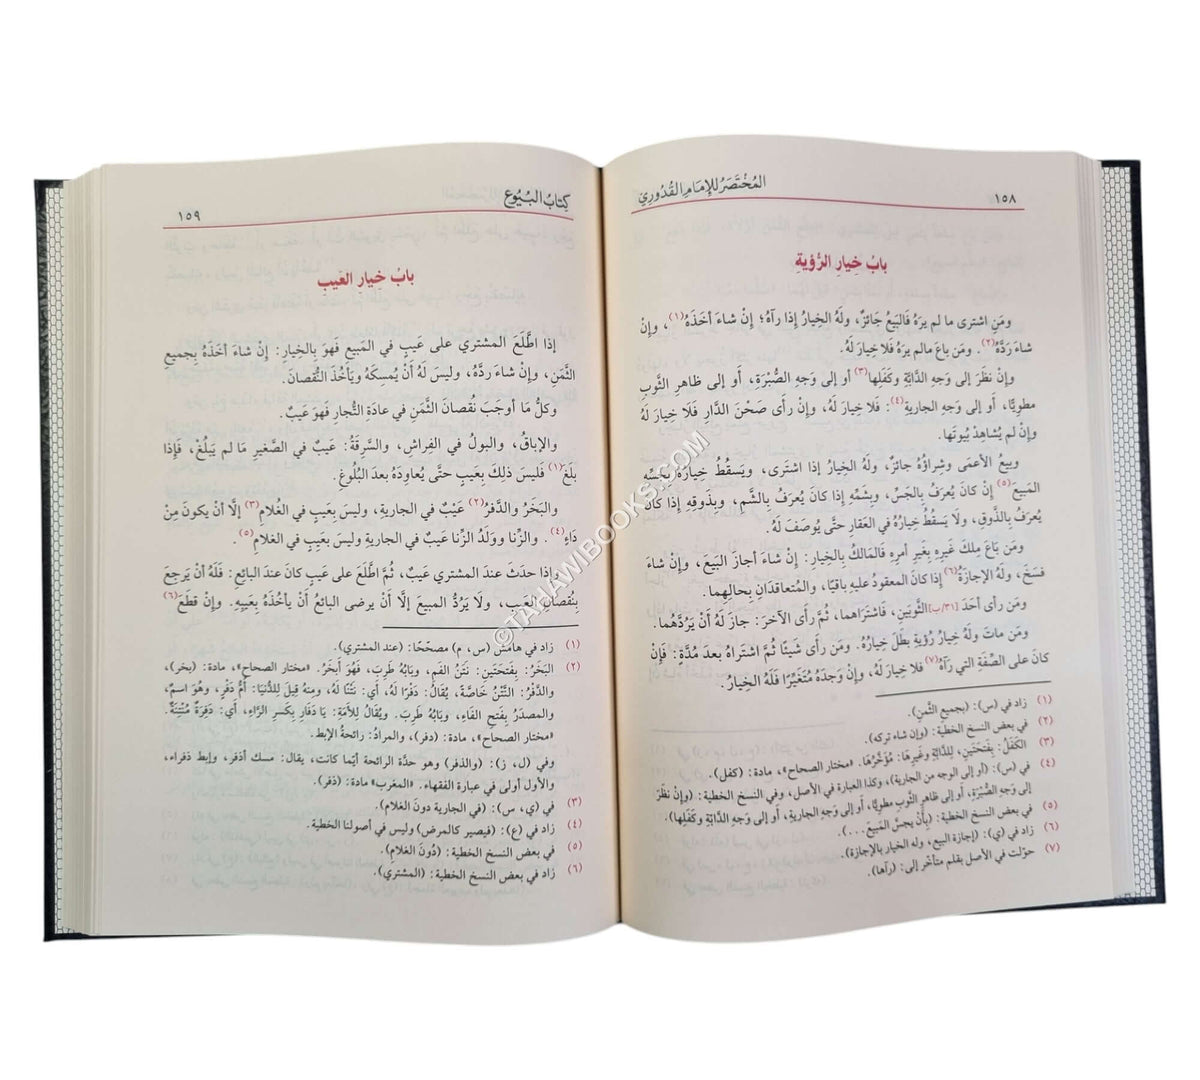 ١٥٨
المُخْتَصَرُ للإِمَامِ القُدُورِيّ
بابُ خيارِ الرُّؤيةِ
ومَنِ اشترى ما لم يرَهُ فَالبَيعُ جَائزٌ، ولَهُ الخِيارُ إذا رآهُ؛ إنْ شاءَ أخَذَهُ(١)، وإنْ
شاءَ رَدَّهُ(٢). ومَن باعَ مالم يرَهُ فَلا خِيارَ لَهُ.
وإنْ نظَرَ إلى وَجهِ الدَّابَّةِ وكَفَلِها(٣) أو إلى وَجهِ الصُّبْرَةِ، أو إلى ظاهرِ الثَّوبِ
مطويًّا، أو إلى وَجهِ الجاريةِ(٤): فَلا خِيارَ لَهُ، وإنْ رأى صَحْنَ الدَّارِ فَلَا خِيارَ لَهُ
وإنْ لم يُشاهِدْ بُيوتَها.
وبيعُ الأعمَى وشِراؤُه جائزٌ، ولَهُ الخِيارُ إذا اشترَى، ويَسقُطُ خِيارُهُ بجَسِّه
المَبيعَ(٥) إنْ كانَ يُعرَفُ بالجَسِّ، وبشَمِّه إذا كانَ يُعرَفُ بالشَّمِ، وبذَوقِهِ إذا كانَ
يُعرَفُ بالذَّوقِ، ولَا يَسقُطُ خِيارُهُ في العَقارِ حتَّى يُوصَفَ لَهُ.
ومَن بَاعَ مِلكَ غَيرِه بغَيرِ أمرِه فَالمَالكُ بالخِيارِ: إنْ شاءَ أجازَ البَيعَ، وإنْ شاءَ
فسَخَ، ولَهُ الإجازَةُ(٦) إذا كانَ المعقودُ عليهِ باقيًا، والمُتعاقدَانِ بحَالِهِما.
ومَن رأى أحَدَ [٣١/ب] الثَّوبَينِ، فَاشتَراهما، ثُمَّ رأى الآخرَ: جَازَ لَهُ أنْ يَرُدَّهُما.
ومَن ماتَ ولَهُ خِيارُ رُؤيةٍ بطَلَ خِيارُهُ. ومَن رأى شَيئًا ثُمَّ اشتراهُ بعدَ مُدَّةٍ: فَإنْ
كانَ على الصِّفَةِ التي رَآهُ(٧) فلا خِيارَ لَهُ، وإنْ وَجدَهُ مُتَغيِّرًا فَلَهُ الخِيارُ.
(١) زاد في (س): (بجميع الثَّمنِ).
(٢) في بعض النسخ الخطية: (وإن شاء تركه).
(٣) الكَفَلُ: بفَتحتَينِ، للدَّابَّةِ وغَيرِها: مُؤخَّرُها. «مختار الصحاح»، مادة: (كفل).
(٤) في (س): (أو إلى الوجه من الجارية)، وكذا العبارة في الأصل، وفي النسخ الخطية: (وإنْ نظَرَ
إلى وَجهِ الصُّبْرَةِ، أو إلى ظاهرِ الثَّوبِ مطويًّا، أو إلى وَجهِ الجاريةِ، أو إلى وَجهِ الدَّابَّةِ وكَفَلِها).
(٥) في بعض النسخ الخطية: (بأَنْ يجسَّ المَبيعَ...).
(٦) زاد في (ي): (إجازة البيع، وله الخيار بالإجازة).
(٧) حوّلت في الأصل بقلم متأخّر إلى: (رآها).
كِتَابُ البُيُوعِ
١٥٩
بابُ خِيارِ العَيبِ
إذا اطَّلَعَ المشتري على عَيبٍ في المَبيعِ فهوَ بالخِيارِ: إنْ شاءَ أخَذَهُ بجَميعِ
الثَّمَنِ، وإنْ شاءَ ردَّهُ، وليسَ لَهُ أنْ يُمسِكَهُ ويَأخُذَ النُّقصانَ.
وكلُّ ما أوجَبَ نُقصانَ الثَّمنِ في عادَةِ التُّجارِ فَهوَ عَيبٌ.
والإباقُ، والبَولُ في الفِراشِ، والسَّرِقَةُ: عَيبٌ في الصَّغيرِ مَا لم يَبلُغْ، فَإذا
بلَغَ(١) فَليسَ ذلكَ بعَيبٍ حتَّى يُعاوِدَهُ بعدَ البُلُوغِ.
والبَخَرُ والدَّفَرُ(٢) عَيْبٌ في الجاريةِ، وليسَ بعَيبٍ في الغُلامِ(٣) إلَّا أنْ يكونَ مِنْ
دَاءٍ(٤). والزِّنا ووَلَدُ الزِّنا عَيبٌ في الجاريةِ وليسَ بعَيبٍ في الغلامِ(٥).
وإذا حدَثَ عندَ المشتري عَيبٌ، ثُمَّ اطَّلعَ على عَيبٍ كانَ عندَ البائعِ: فَلَهُ أنْ يَرجعَ
بنُقصانِ العَيبِ، ولَا يَرُدُّ المبيعَ إلَّا أنْ يرضى البائعُ أنْ يأخُذَهُ بعَيبِهِ. وإنْ قطَعَ(٦)
(١) زاد في هامش (س، م) مصححًا: (عند المشتري).
(٢) البَخَرُ: بفَتحتَينِ: نَتنُ الفَمِ، وبابُهُ طَرِبَ، فَهوَ أبخَرُ. «مختار الصحاح»، مادة: (بخر)،
والدَّفَرُ: النَّتْنُ خَاصَّةً، يُقالُ: دَفَرًا لَهُ، أي: نَتنًا لَهُ، ومنهُ قِيلَ للدُّنيَا: أُمُّ دَفْرٍ، وهُوَ اسم،
والمصدَرُ بفَتحِ الفَاءِ، وبَابُهُ طَرِبَ. ويُقالُ للأَمَةِ: يَا دَفَارِ بكَسرِ الرَّاءِ، أي: دَفِرَةٌ مُنتِنَةٌ.
«مختار الصحاح»، مادة: (دفر)، والمرادُ: رائحةُ الإبط.
وفي (ل، ز): (والذفر) وهو حدّة الرائحة أيّما كانت، يقال: مسك أذفر، وإبط ذفراء،
والأول أولى في عبارة الفقهاء. «المغرب» مادة: (ذفر).
(٣) في (ي، س): (في الجارية دونَ الغلام).
(٤) زاد في (ع): (فيصير كالمرض) وليس في أصولنا الخطية.
(٥) في بعض النسخ الخطية: (دُونَ الغلامِ).
(٦) زاد في بعض النسخ الخطية: (المشتري).
©TAHAWIBOOKS.COM